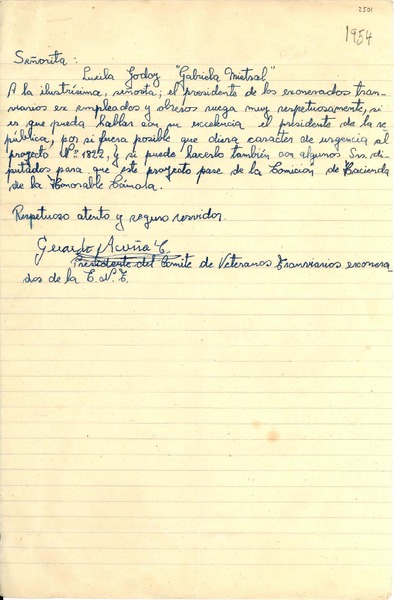 2501
1954
Señorita:
Lucila Godoy "Gabriela Mistral"
A la ilustrísima, señorita; el presidente de los exonerados tran-
viarios ex empleados y obreros ruega muy respetuosamente, si
es que pueda hablar con su excelencia el presidente de la re-
pública, por si fuera posible que diera caracter de urgencia al
proyecto Nº 1822, y si puede hacerlo también con algunos Srs. di-
putados para que este proyecto pase de la Comición de Hacienda
de la Honorable Cámara.
Respetuoso atento y seguro servidor.
Gerardo Acuña C.
Presidente del Comité de Veteranos Tranviarios exonera-
dos de la E. N. T.